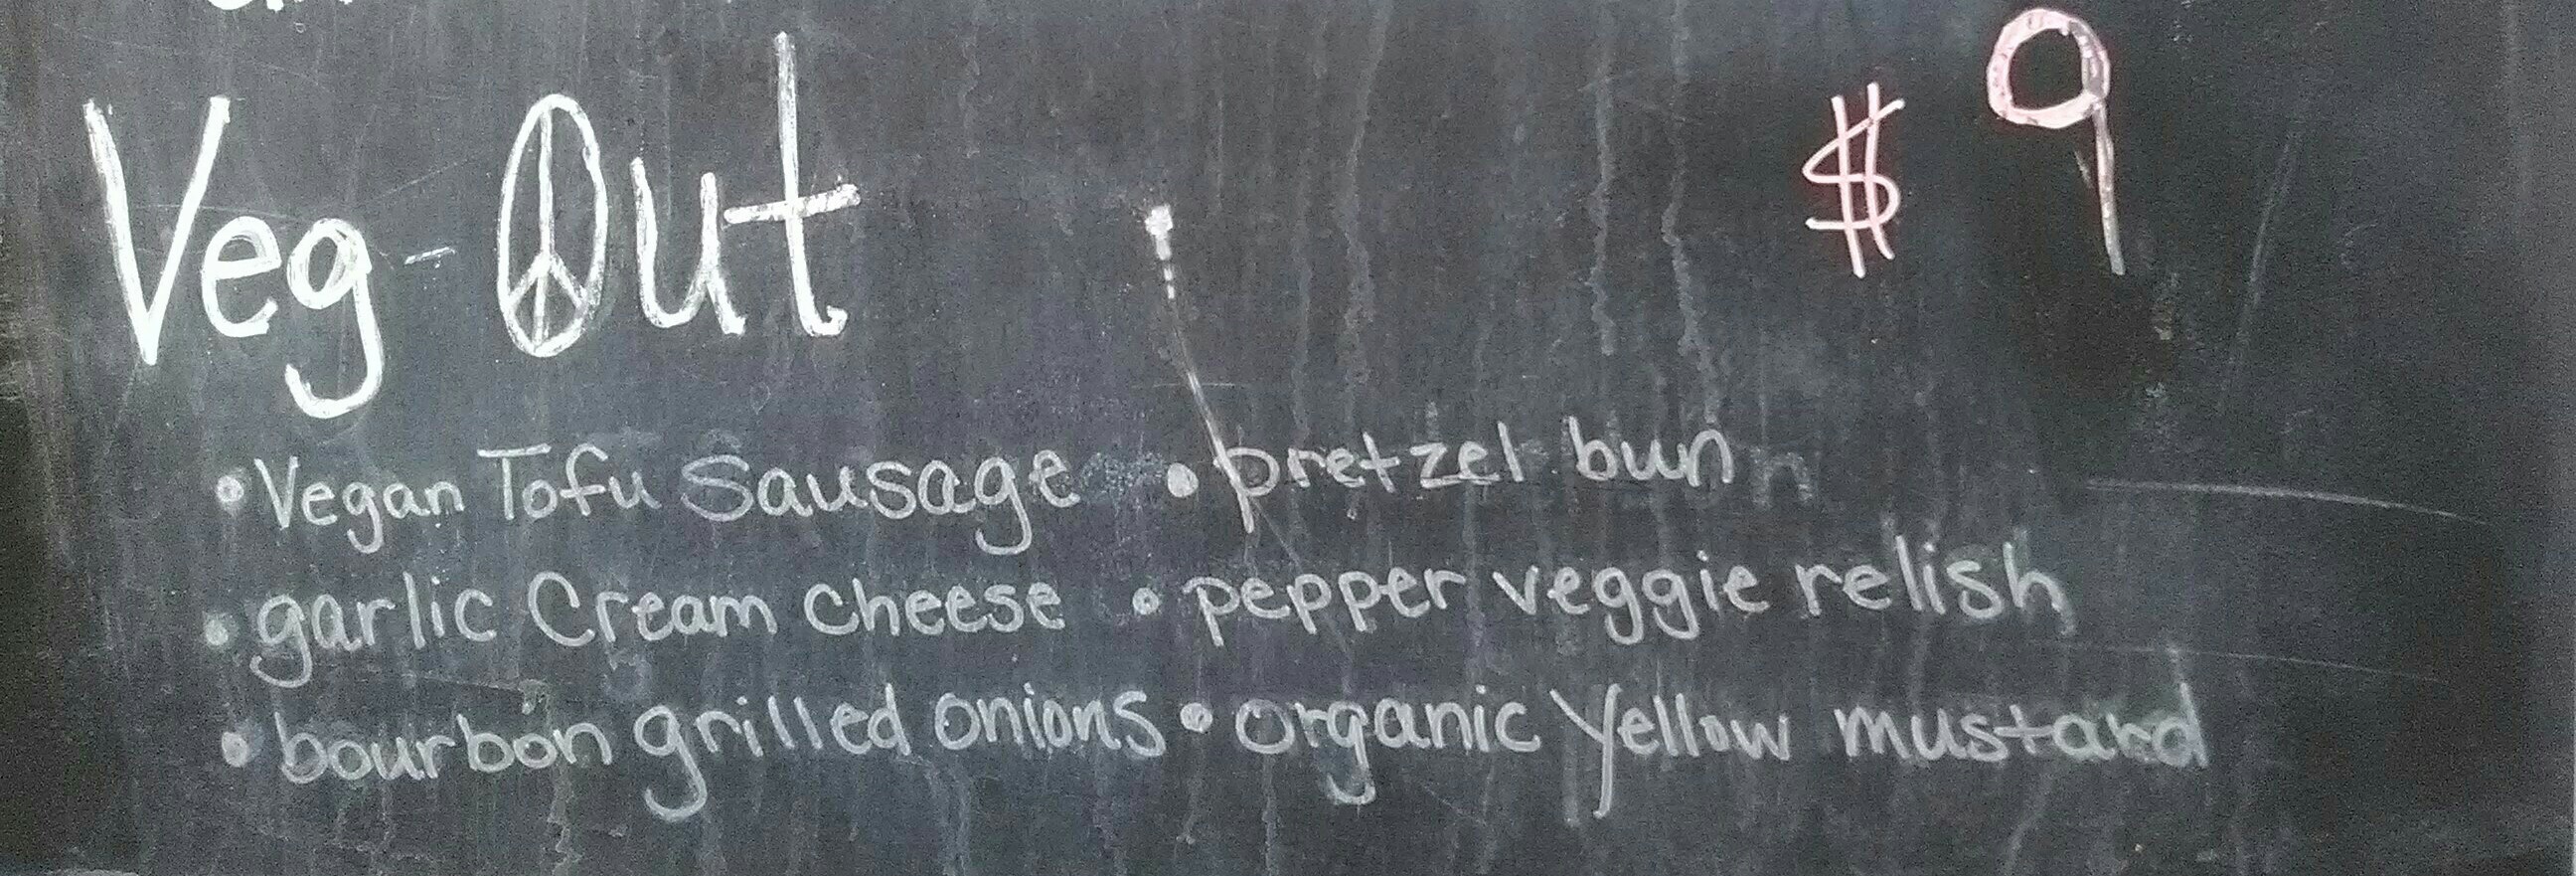 Veg-Out $9
• Vegan Tofu Sausage • pretzel bun
• garlic Cream cheese • pepper veggie relish
• bourbon grilled onions • organic Yellow mustard